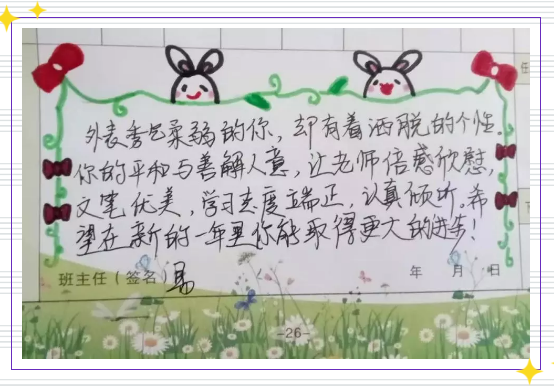 外表秀气柔弱的你，却有着洒脱的个性。
你的平和与善解人意，让老师倍感欣慰，
文笔优美，学习态度端正，认真倾听。希
望在新的一年里你能取得更大的进步！
班主任（签名）
年 月 日
-26-